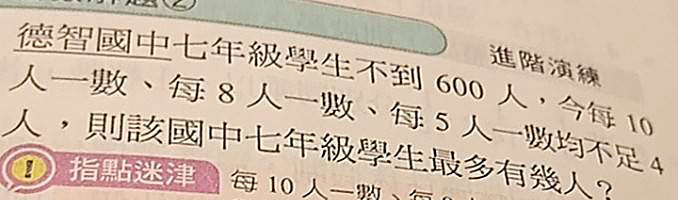 ②
進階演練
德智國中七年級學生不到 600 人，今每 10
人一數、每 8 人一數、每 5 人一數均不足 4
人，則該國中七年級學生最多有幾人？
指點迷津 每 10 人一數、每